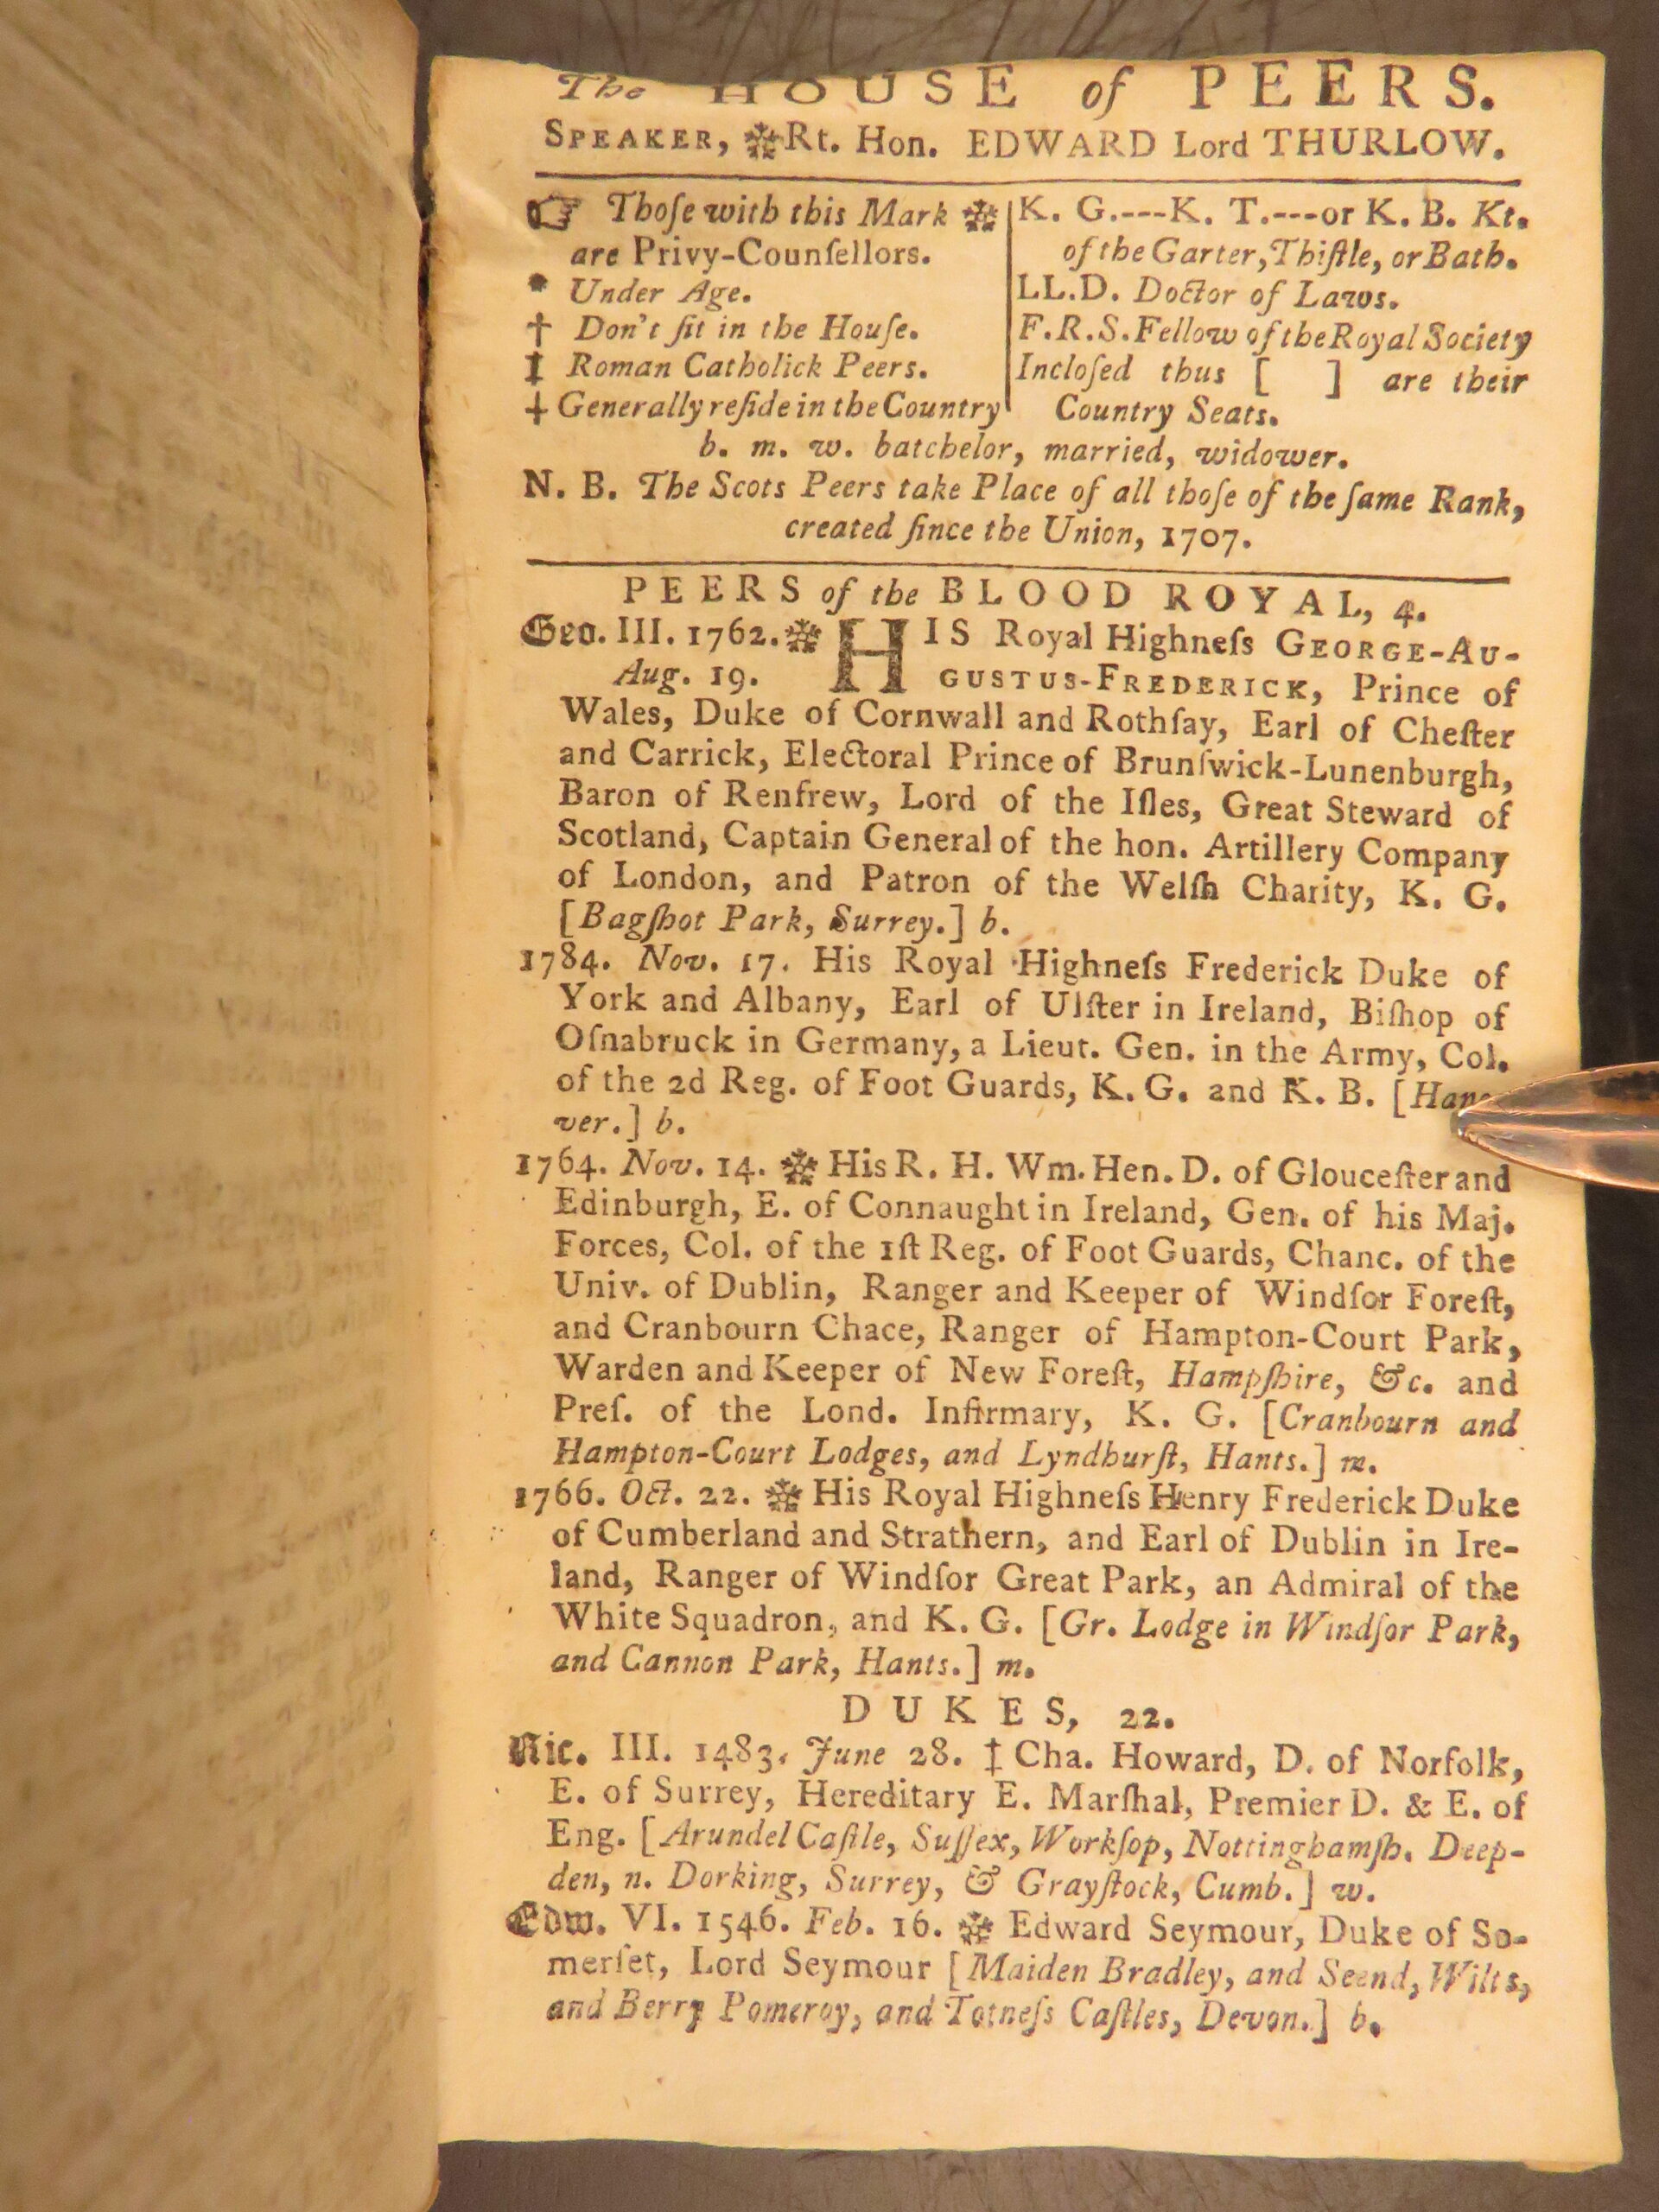 The HOUSE of PEERS.
SPEAKER, Rt. Hon. EDWARD Lord THURLOW.
Thoſe with this Mark
are Privy-Counſellors.
* Under Age.
† Don't ſit in the Houſe.
‡ Roman Catholick Peers.
Generally reſide in the Country
K. G.---K. T.---or K. B. Kt.
of the Garter, Thiſtle, or Bath.
LL.D. Doctor of Laws.
F.R.S. Fellow of the Royal Society
Incloſed thus [ ] are their
Country Seats.
b. m. w. batchelor, married, widower.
N. B. The Scots Peers take Place of all thoſe of the ſame Rank,
created ſince the Union, 1707.
PEERS of the BLOOD ROYAL, 4.
Geo. III. 1762. HIS Royal Highneſs GEORGE-AU-
Aug. 19. GUSTUS-FREDERICK, Prince of
Wales, Duke of Cornwall and Rothſay, Earl of Cheſter
and Carrick, Electoral Prince of Brunſwick-Lunenburgh,
Baron of Renfrew, Lord of the Iſles, Great Steward of
Scotland, Captain General of the hon. Artillery Company
of London, and Patron of the Welſh Charity, K. G.
[Bagſhot Park, Surrey.] b.
1784. Nov. 17. His Royal Highneſs Frederick Duke of
York and Albany, Earl of Ulſter in Ireland, Biſhop of
Oſnabruck in Germany, a Lieut. Gen. in the Army, Col.
of the 2d Reg. of Foot Guards, K. G. and K. B. [Hano-
ver.] b.
1764. Nov. 14. His R. H. Wm. Hen. D. of Glouceſter and
Edinburgh, E. of Connaught in Ireland, Gen. of his Maj.
Forces, Col. of the 1ſt Reg. of Foot Guards, Chanc. of the
Univ. of Dublin, Ranger and Keeper of Windſor Foreſt,
and Cranbourn Chace, Ranger of Hampton-Court Park,
Warden and Keeper of New Foreſt, Hampſhire, &c. and
Preſ. of the Lond. Infirmary, K. G. [Cranbourn and
Hampton-Court Lodges, and Lyndhurſt, Hants.] m.
1766. Oct. 22. His Royal Highneſs Henry Frederick Duke
of Cumberland and Strathern, and Earl of Dublin in Ire-
land, Ranger of Windſor Great Park, an Admiral of the
White Squadron, and K. G. [Gr. Lodge in Windſor Park,
and Cannon Park, Hants.] m.
DUKES, 22.
Ric. III. 1483. June 28. ‡ Cha. Howard, D. of Norfolk,
E. of Surrey, Hereditary E. Marſhal, Premier D. & E. of
Eng. [Arundel Caſtle, Suſſex, Workſop, Nottinghamſh. Deep-
den, n. Dorking, Surrey, & Grayſtock, Cumb.] w.
Edw. VI. 1546. Feb. 16. Edward Seymour, Duke of So-
merſet, Lord Seymour [Maiden Bradley, and Seend, Wilts,
and Berry Pomeroy, and Totneſs Caſtles, Devon.] b.